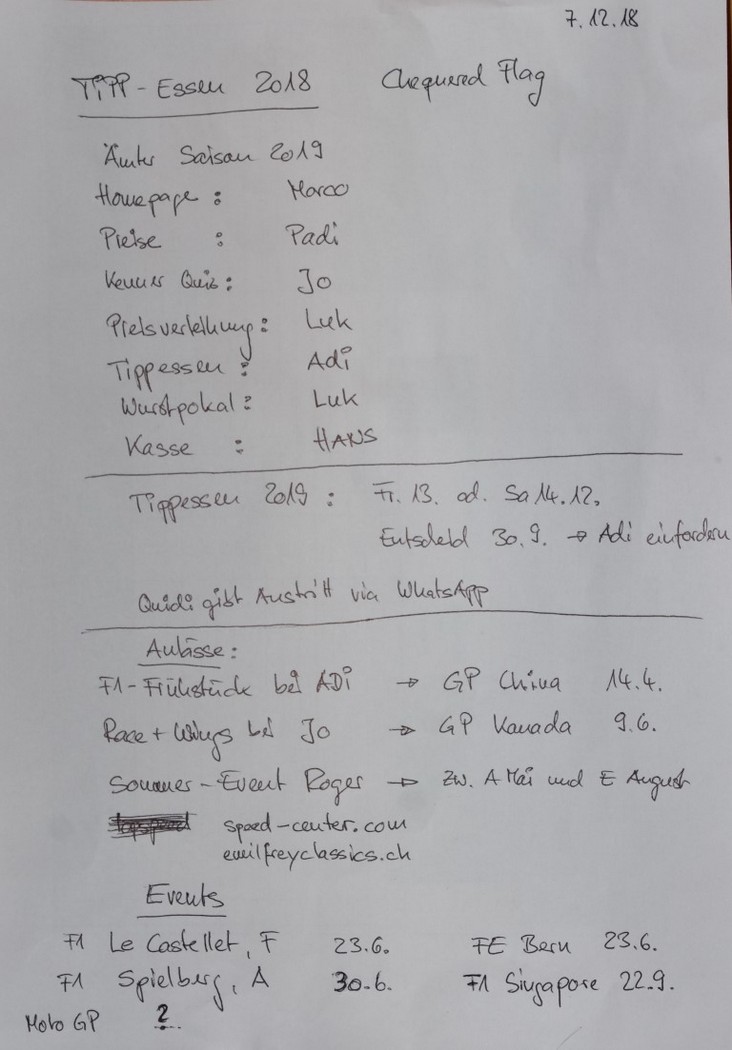 7.12.18
TIPP-Essen 2018 Chequered Flag
Ämter Saison 2019
Homepage : Marco
Preise : Padi
Kenner Quiz : Jo
Preisverleihung : Luk
Tippessen : Adi
Wurstpokal : Luk
Kasse : HANS
Tippessen 2019 : Fr. 13. od. Sa 14.12.
Entscheid 30.9. → Adi einfordern
Quidi gibt Austritt via WhatsApp
Anlässe:
F1-Frühstück bei ADi → GP China 14.4.
Race + Wings bei Jo → GP Kanada 9.6.
Sommer-Event Roger → zw. A Mai und E August
speed-center.com
emilfreyclassics.ch
Events
F1 Le Castellet, F 23.6. FE Bern 23.6.
F1 Spielberg, A 30.6. F1 Singapore 22.9.
Moto GP ?